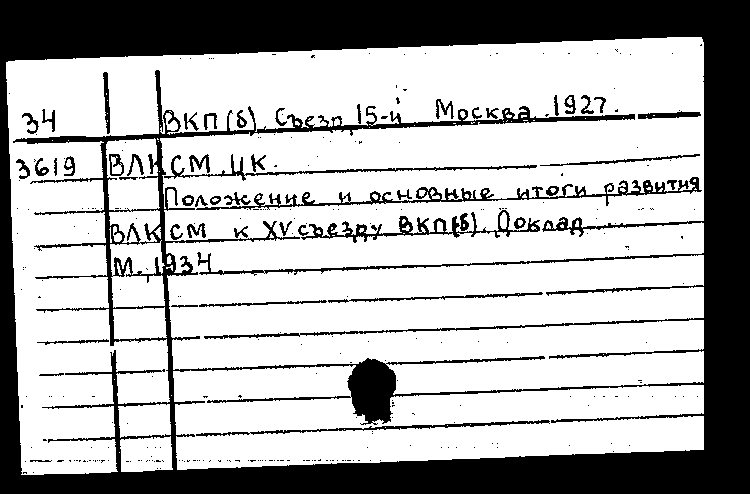 34 ВКП(б) Съезд 15-й Москва 1927.
3619 ВЛКСМ. ЦК.
Положение и основные итоги развития
ВЛКСМ к XV съезду ВКП(б). Доклад.....
М., 1934.